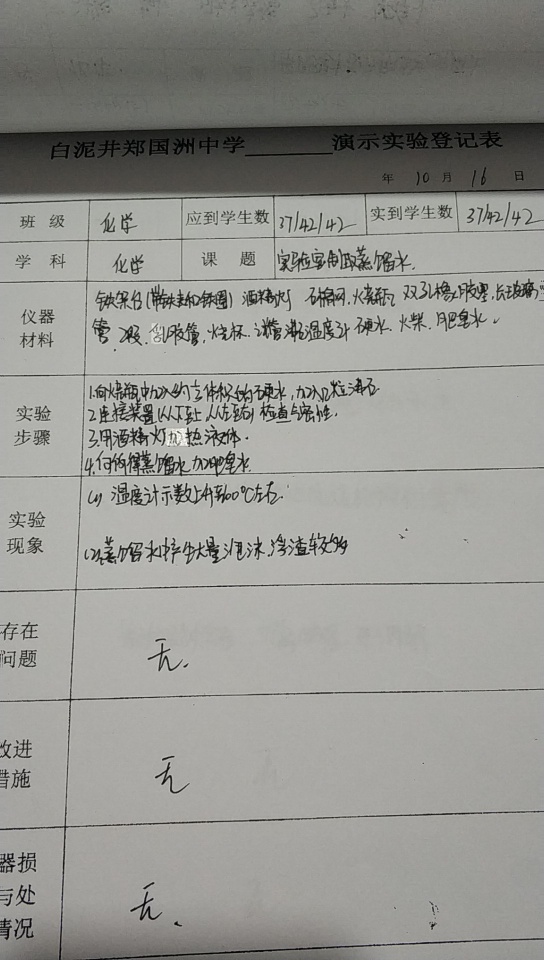 白泥井郑国洲中学______演示实验登记表
年 10 月 16 日
班 级 化学 应到学生数 37/42/42 实到学生数 37/42/42
学 科 化学 课 题 实验室制取蒸馏水.
仪器材料 铁架台(带铁夹和铁圈) 酒精灯 石棉网, 烧瓶, 双孔橡胶塞, 长玻璃
管, 2段, 乳胶管, 烧杯, 试管 沸石 温度计 硬水, 火柴, 肥皂水.
实验步骤 1.向烧瓶中加入约 体积的硬水, 加入几粒沸石
2.连接装置 从下到上 从左到右 检查气密性.
3.用酒精灯加热液体.
4.向 蒸馏水 加肥皂水
实验现象 (1) 温度计示数上升到100℃左右.
(2)蒸馏水中产生大量泡沫, 浮渣较少
存在问题 无.
改进措施 无
器损与处情况 无.